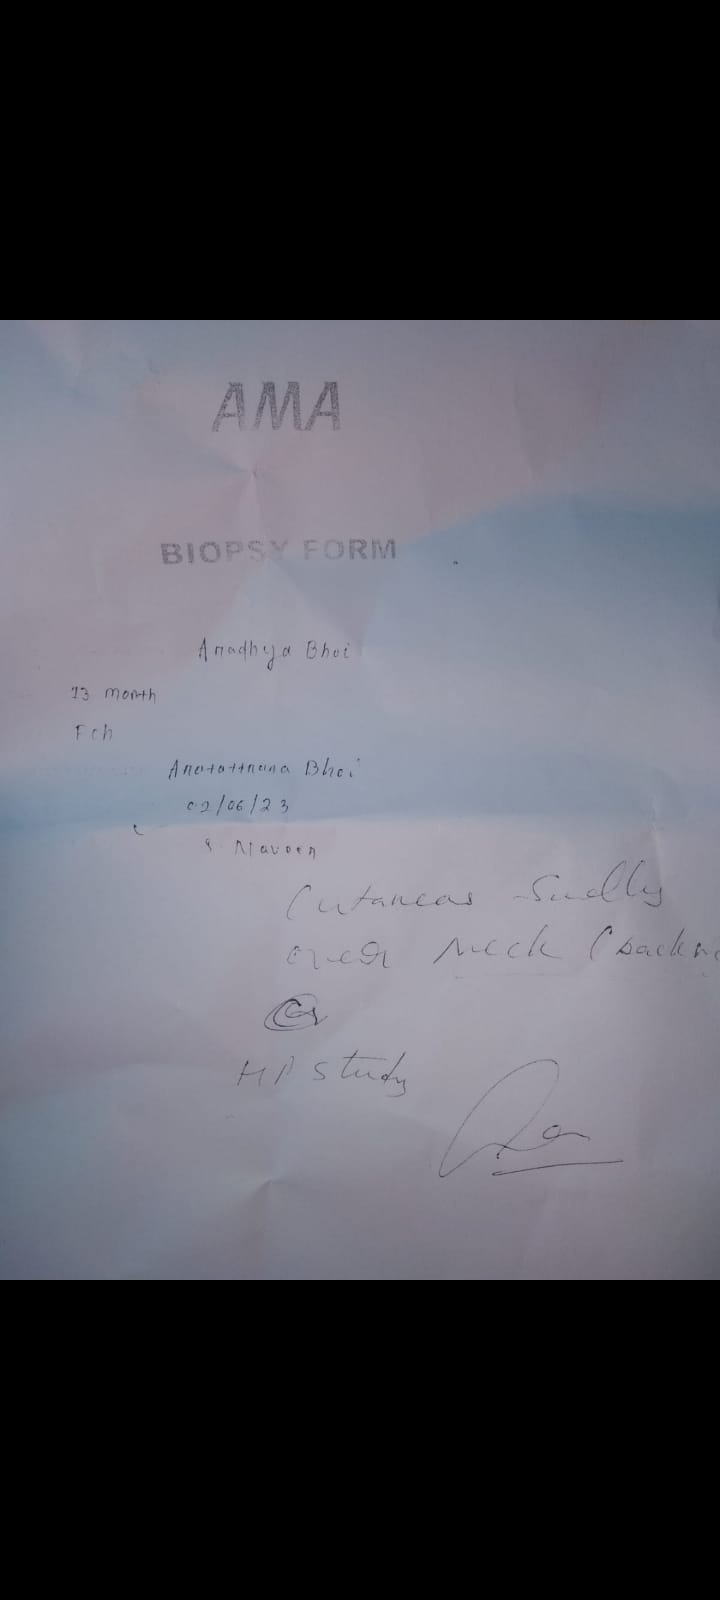 AMA
BIOPSY FORM
Anadhya Bhoi
13 month
Fch
Bhoi
02/06/23
S. Naveen
Cutaneous Swelling
over Neck (back
HP Study